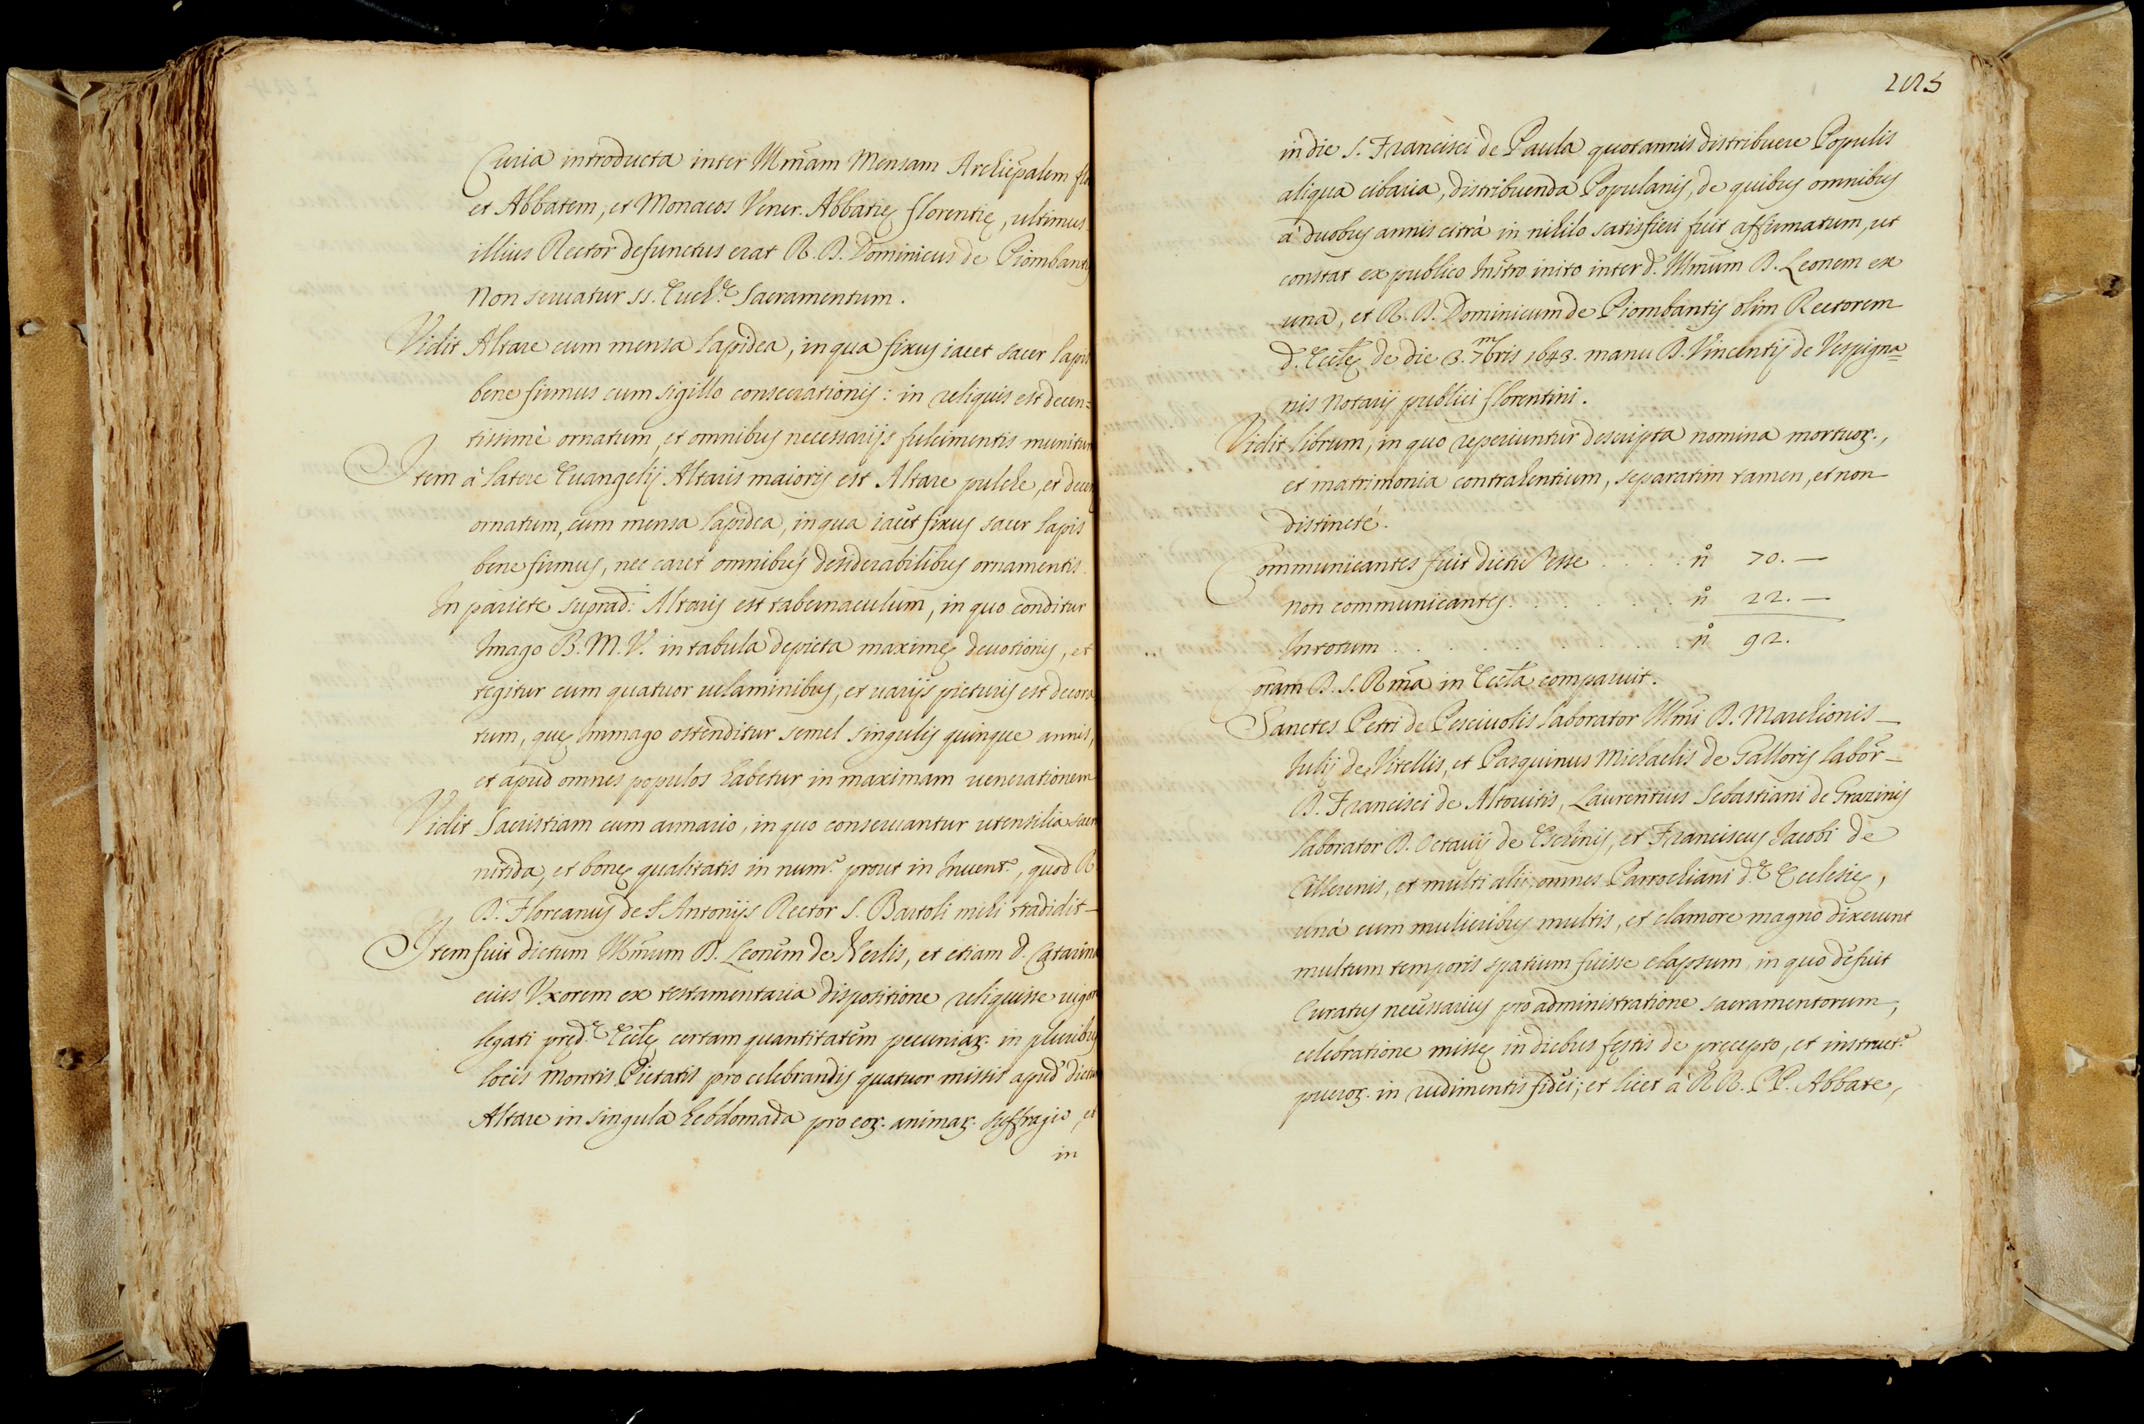 Curia introducta inter Illmam Mensam Archiepalem flo
et Abbatem, et Monacos Vener. Abbatię florentię, ultimus
illius Rector defunctus erat R. D. Dominicus de Piombantij
Non seruatur ss. Euch.ę Sacramentum.
Vidit Altare cum mensa lapidea, in qua fixus iacet sacer lapis
bene firmus cum sigillo consecrationis: in reliquis est decen=
tissimè ornatum, et omnibus necessarijs fulcimentis munitum
Item à latere Euangelij Altaris maioris est Altare pulchre, et decen
ornatum, cum mensa lapidea, in qua iacet fixus sacer lapis
bene firmus, nec caret omnibus desiderabilibus ornamentis.
In pariete suprad: Altaris est tabernaculum, in quo conditur
Imago B. M. V. in tabula depicta maximę deuotionis, et
tegitur cum quatuor uelaminibus, et uarijs picturis est decora
tum, quę Immago ostenditur semel singulis quinque annis,
et apud omnes populos habetur in maximam uenerationem
Vidit Sacristiam cum armario, in quo conseruantur utensilia sacra
nitida, et bonę qualitatis in num.o prout in Inuent.o, quod R.
D. Floreanus de S. Antonijs Rector S. Bartoli mihi tradidit
Item fuit dictum Illmum D. Leonem de Nerlis, et etiam d. Catarina
eius Vxorem ex testamentaria dispositione reliquisse uigore
legati pręd.ę Ecclę certam quantitatem pecuniar. in pluribus
locis Montis Pietatis pro celebrandis quatuor missis apud dictum
Altare in singula hebdomada pro eor. animar. suffragio, et
in
2025
in die S. Francisci de Paula quotannis distribuere Populis
aliqua cibaria, distribuenda Populanis, de quibus omnibus
à duobus annis citrà in nihilo satisfieri fuit affirmatum, ut
constat ex publico Instro inito inter d. Illmum D. Leonem ex
una, et R. D. Dominicum de Piombantijs olim Rectorem
d. Ecclę de die 3. mens 7bris 1643. manu D. Vincentij de Vespigna=
nis Notarij publici florentini.
Vidit librum, in quo reperiuntur descripta nomina mortuor.,
et matrimonia contrahentium, separatim tamen, et non
distinctè.
Communicantes fuit dictum esse . . . . . n.o 70. —
non communicantes . . . . . . . n.o 22. —
In totum . . . . . . . . . . n.o 92.
Coram D. S. Rma in Eccla comparuit.
Sanctes Petri de Pesciuolis laborator Illmi D. Marchionis
Iulij de Vitellis, et Pasquinus Michaelis de Galloris labor
D. Francisci de Altouitis, Laurentius Sebastiani de Grazinis
laborator D. Octauij de Eschinis, et Franciscus Jacobi de
et multi alii omnes Parrochiani d.ę Ecclesię,
unà cum mulieribus multis, et clamore magno dixerunt
multum temporis spatium fuisse elapsum, in quo defuit
Curatus necessarius pro administratione sacramentorum,
celebratione missę in diebus festis de pręcepto, et instruct.e
pueror. in rudimentis fidei; et licet à RR. PP. Abbate,